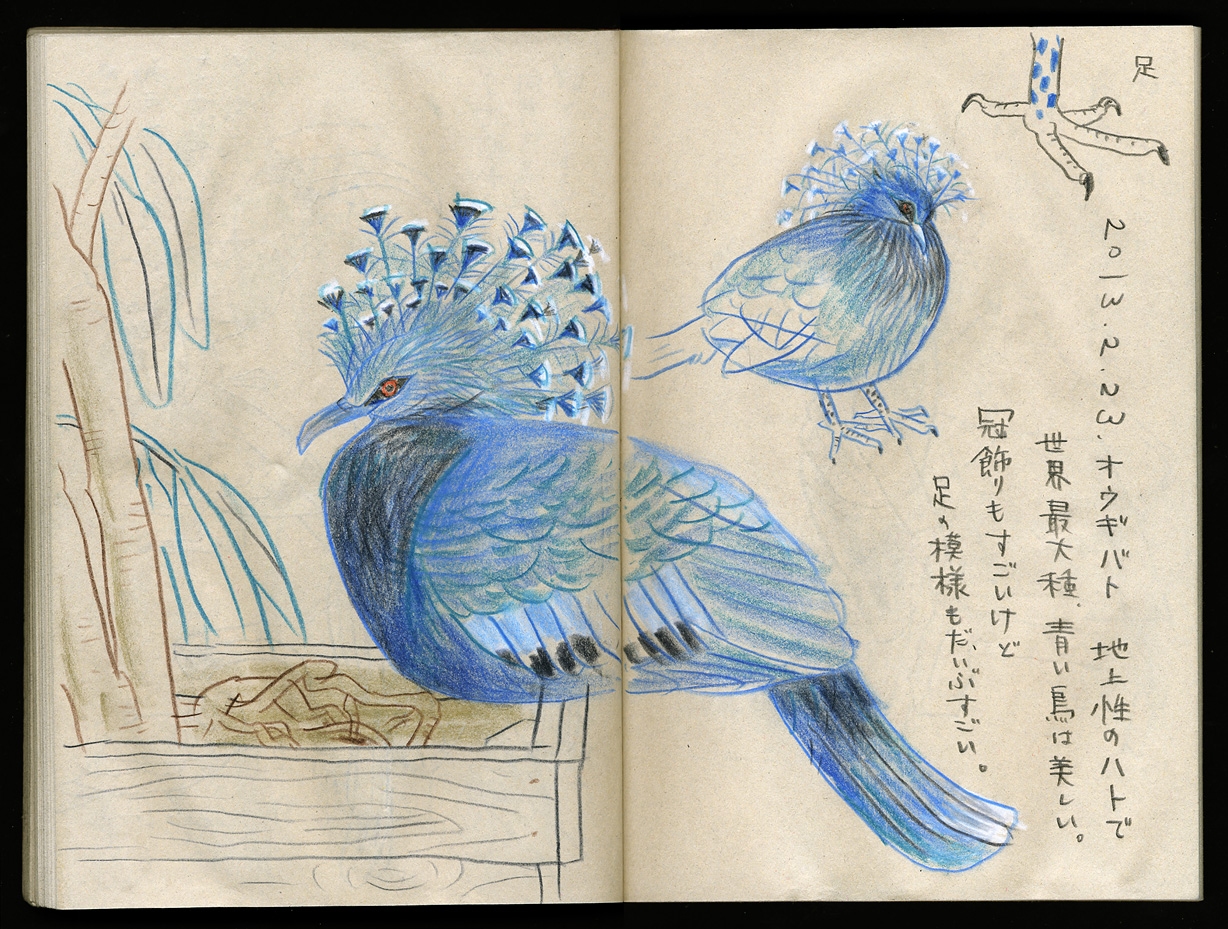 足
2013.2.23. オウギバト 地上性のハトで
世界最大種. 青い鳥は美しい。
冠飾りもすごいけど
足の模様もだいぶすごい。